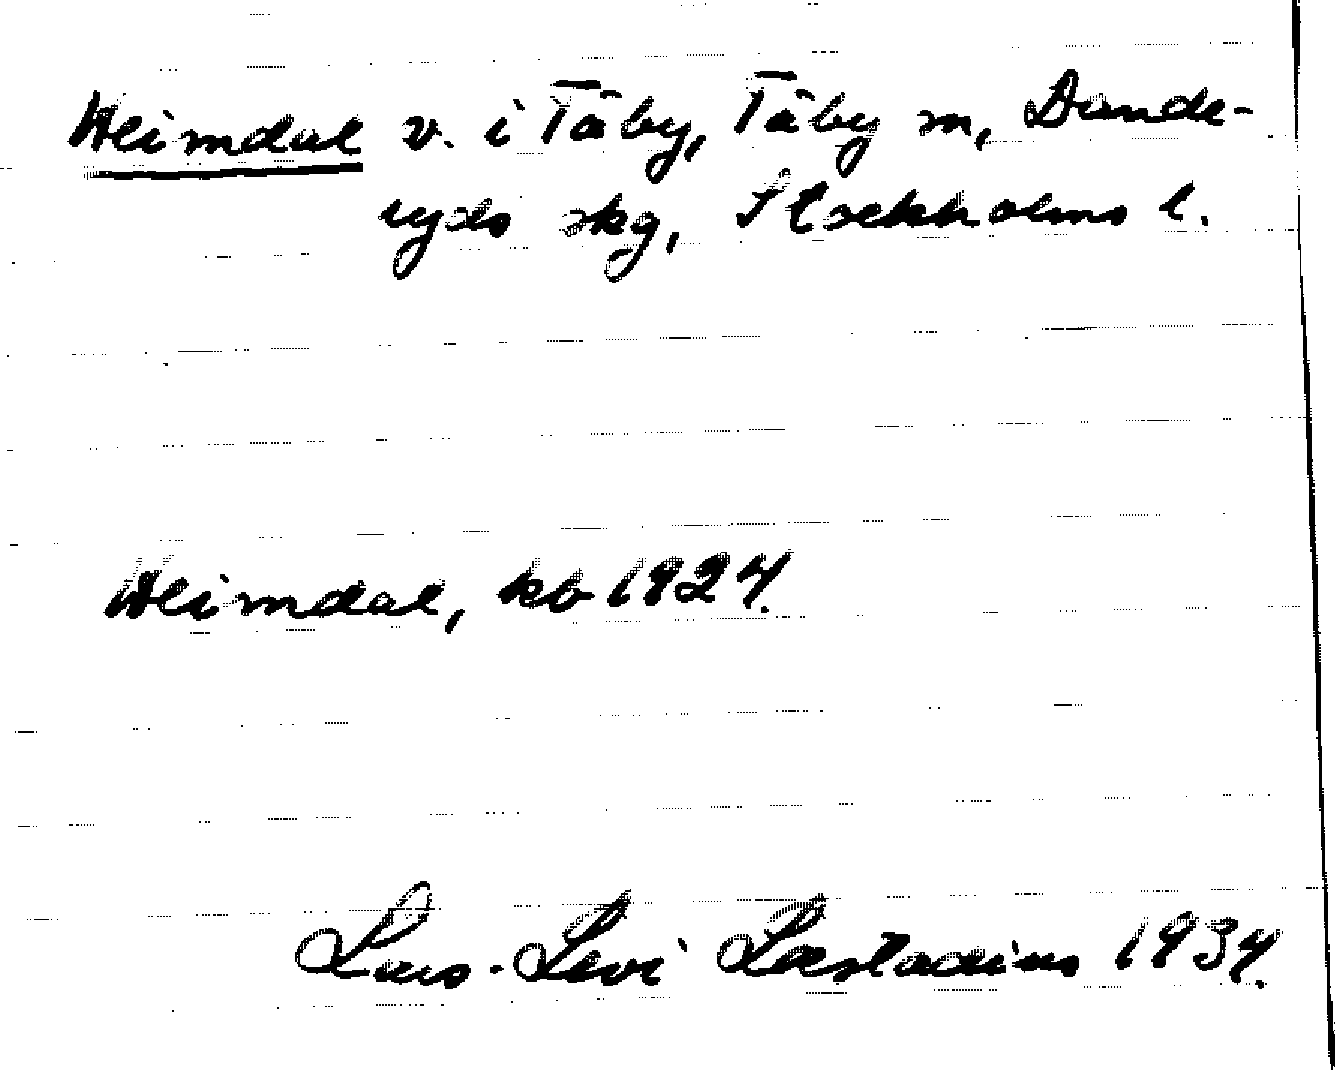 Heimdal v. i Täby, Täby sn, Dande-
ryds skg, Stockholms l.
Heimdal, kb 1924.
Lars-Levi Læstadius 1934.